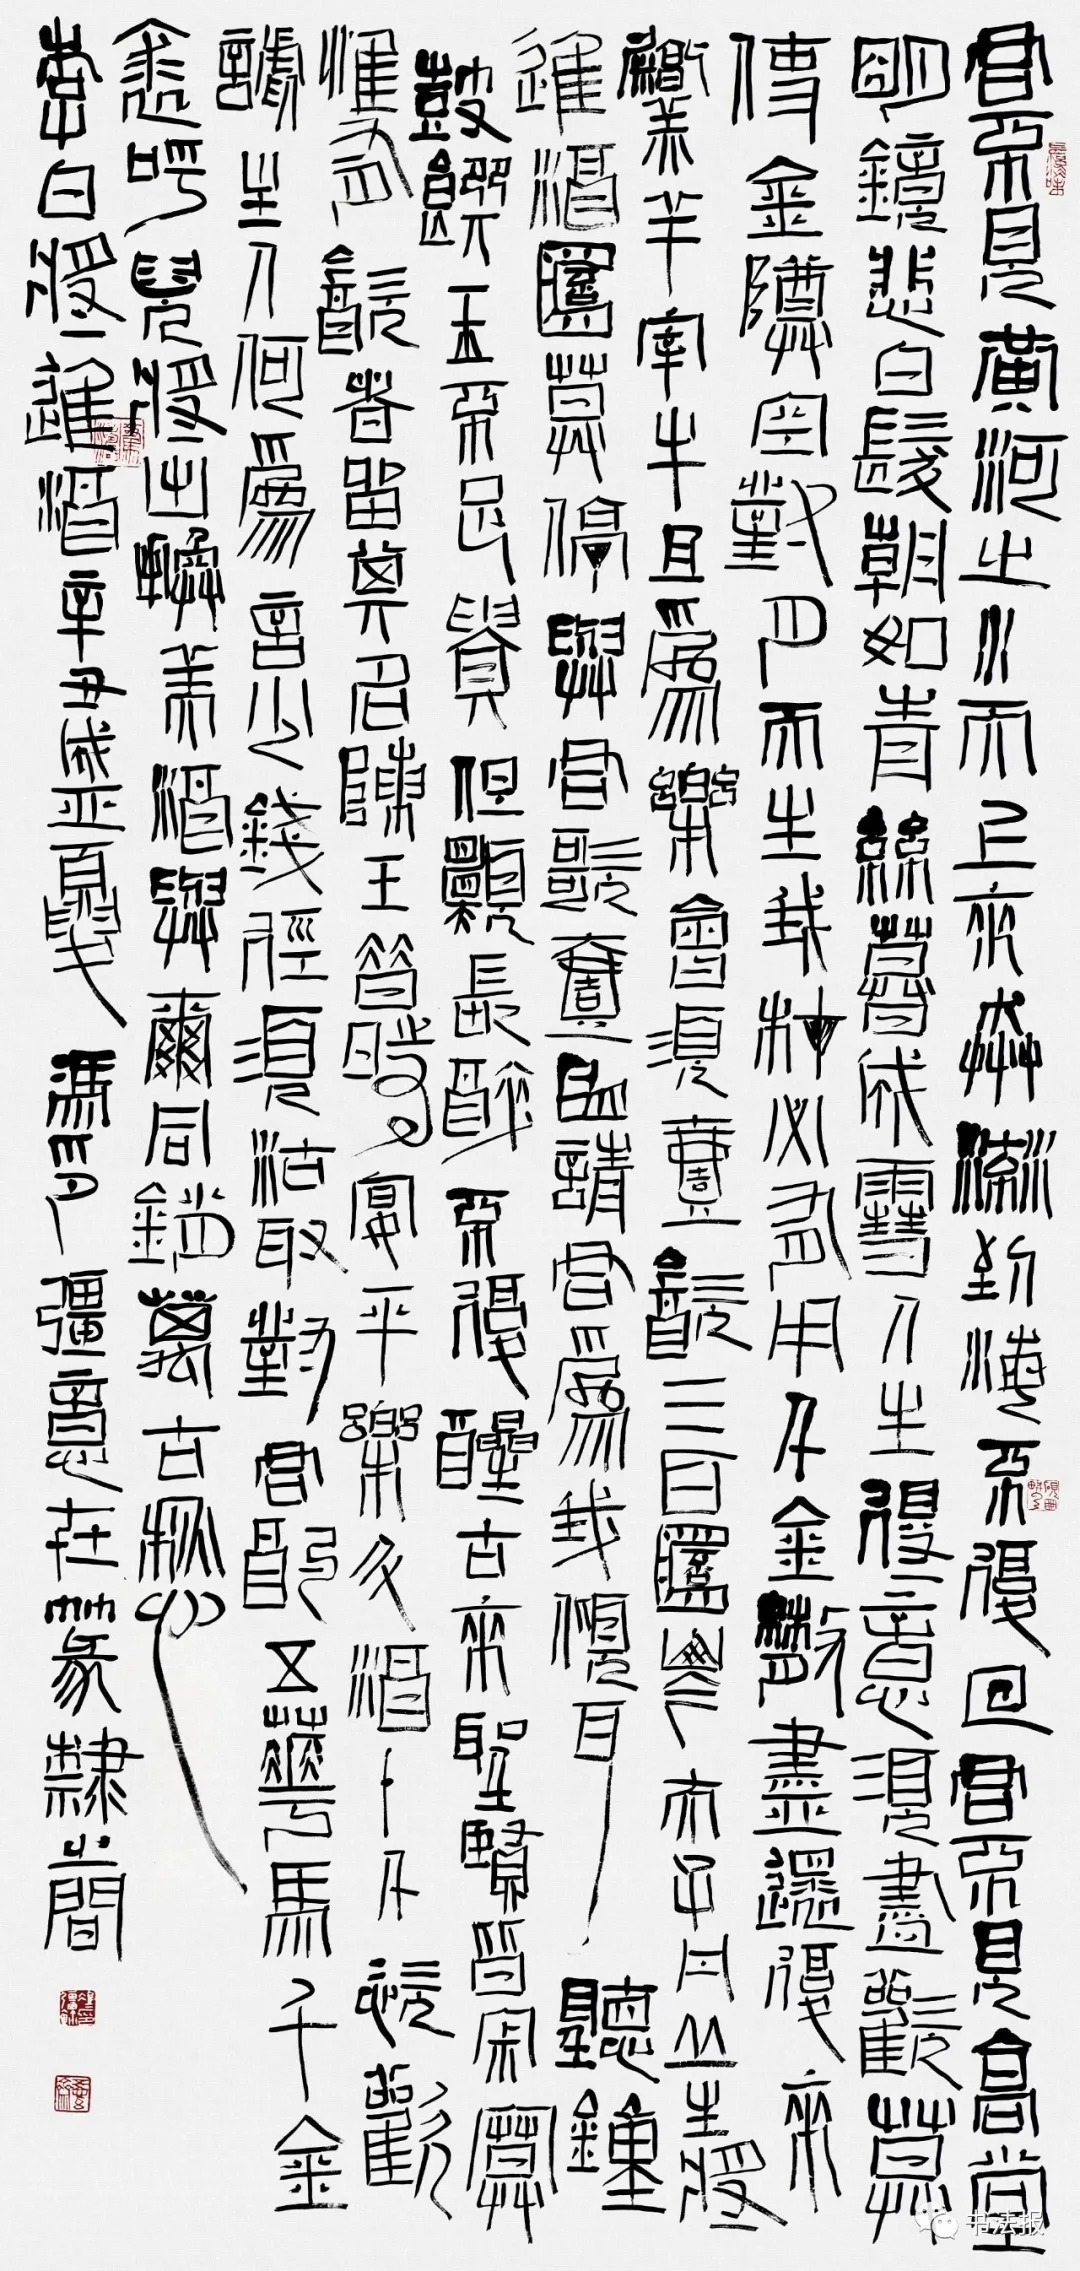 君不見黃河之水天上來奔流到海不復回君不見高堂
明鏡悲白髮朝如青絲暮成雪人生得意須盡歡莫
使金樽空對月天生我材必有用千金散盡還復來
烹羊宰牛且爲樂會須壹飲三百杯岑夫子丹丘生將
進酒杯莫停與君歌壹曲請君爲我傾耳聽鐘
鼓饌玉不足貴但願長醉不復醒古來聖賢皆寂寞
惟有飲者留其名陳王昔時宴平樂斗酒十千恣歡
謔主人何爲言少錢徑須沽取對君酌五華馬千金
裘呼兒將出換美酒與爾同銷萬古愁
李白將進酒辛丑盛夏 馮印彊意在篆隸之間
书法报